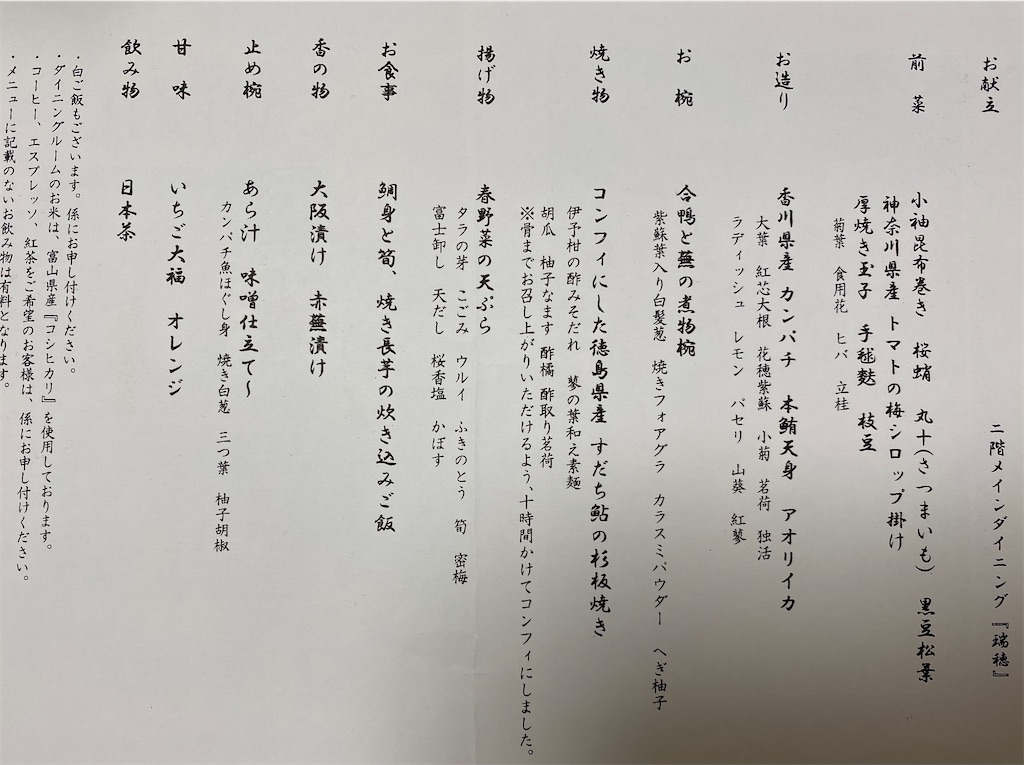 お献立
二階メインダイニング『瑞穂』
前菜
小袖昆布巻き 桜蛸 丸十(さつまいも) 黒豆松葉
神奈川県産 トマトの梅シロップ掛け
厚焼き玉子 手毬麩 枝豆
菊葉 食用花 ヒバ 立桂
お造り
香川県産 カンパチ 本鮪天身 アオリイカ
大葉 紅芯大根 花穂紫蘇 小菊 茗荷 独活
ラディッシュ レモン パセリ 山葵 紅蓼
お椀
合鴨と蕪の煮物椀
紫蘇葉入り白髪葱 焼きフォアグラ カラスミパウダー へぎ柚子
焼き物
コンフィにした徳島県産 すだち鮎の杉板焼き
伊予柑の酢みそだれ 蓼の葉和え素麺
胡瓜 柚子なます 酢橘 酢取り茗荷
※骨までお召し上がりいただけるよう、十時間かけてコンフィにしました。
揚げ物
春野菜の天ぷら
タラの芽 こごみ ウルイ ふきのとう 筍 密梅
富士卸し 天だし 桜香塩 かぼす
お食事
鯛身と筍、焼き長芋の炊き込みご飯
香の物
大阪漬け 赤蕪漬け
止め椀
あら汁 味噌仕立て〜
カンパチ魚ほぐし身 焼き白葱 三つ葉 柚子胡椒
甘味
いちご大福 オレンジ
飲み物
日本茶
・白ご飯もございます。係にお申し付けください。
・ダイニングルームのお米は、富山県産『コシヒカリ』を使用しております。
・コーヒー、エスプレッソ、紅茶をご希望のお客様は、係にお申し付けください。
・メニューに記載のないお飲み物は有料となります。